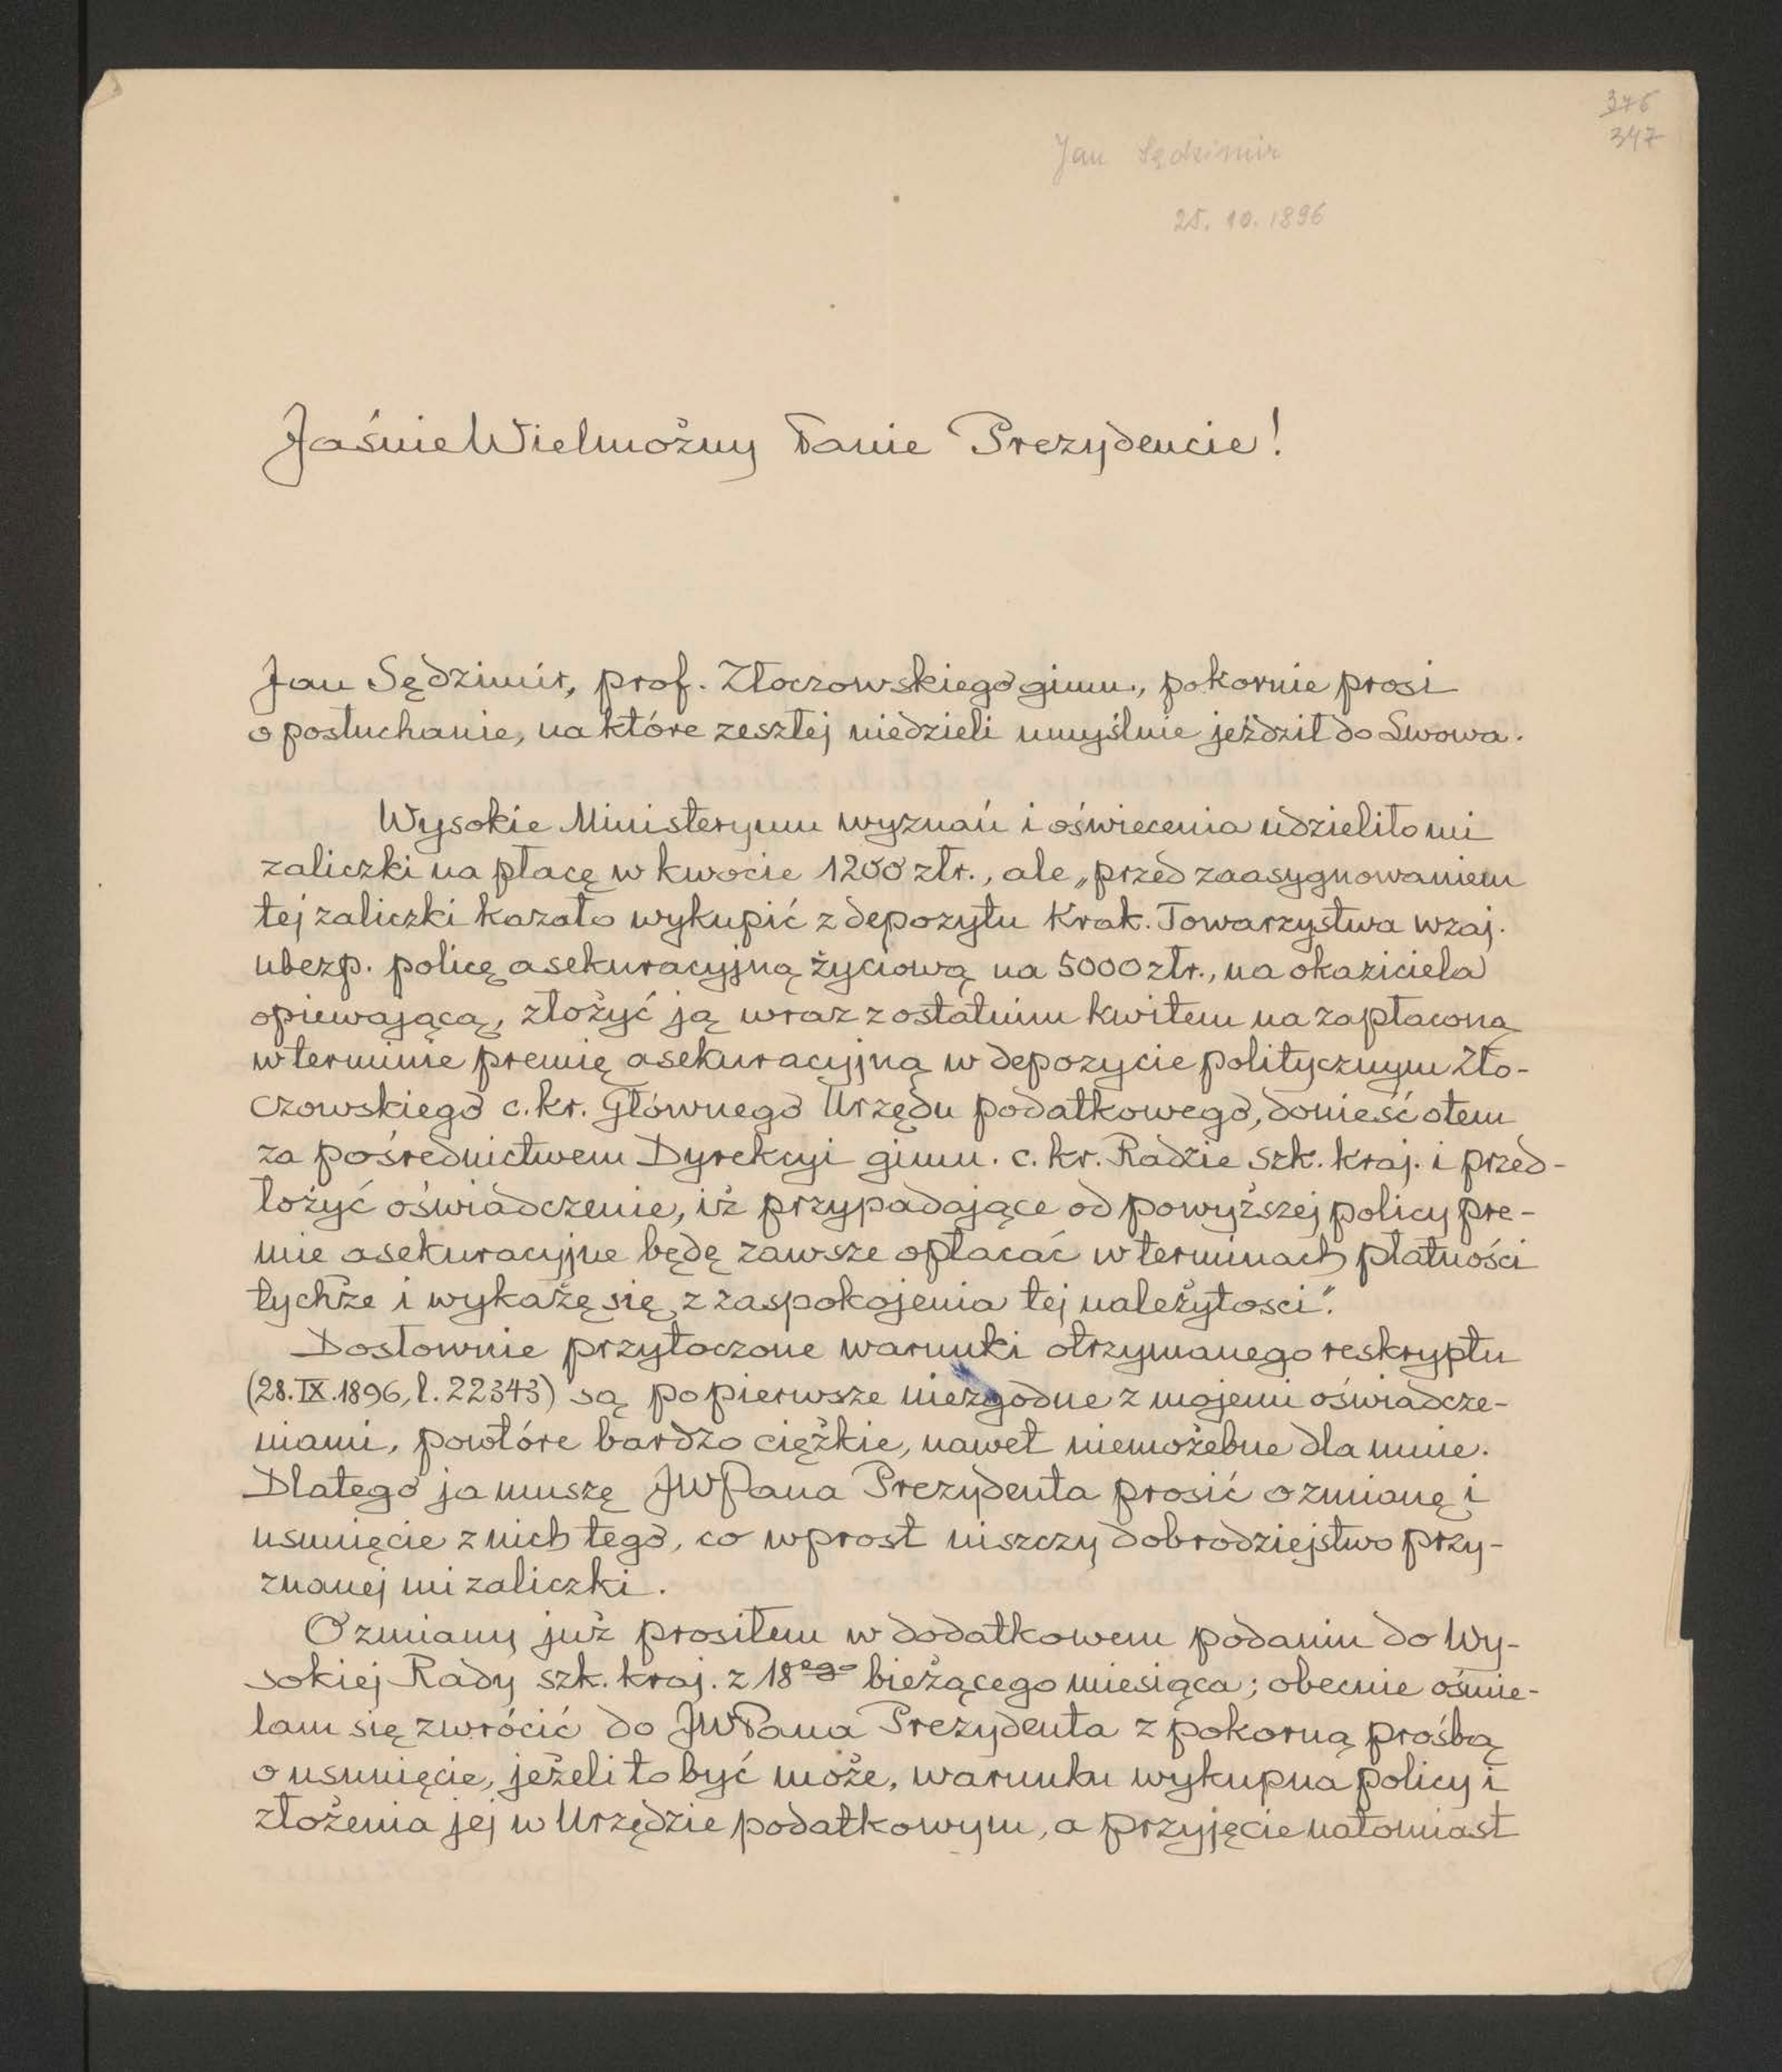 376
347
Jan Sędzimir
25. 10. 1896
Jaśnie Wielmożny Panie Prezydencie!
Jan Sędzimir, prof. Złoczowskiego gimn., pokornie prosi
o posłuchanie, na które zeszłej niedzieli umyślnie jeździł do Lwowa.
Wysokie Ministeryum wyznań i oświecenia udzieliło mi
zaliczki na płacę w kwocie 1200 złr., ale „przed zaasygnowaniem
tej zaliczki kazało wykupić z depozytu Krak. Towarzystwa wzaj.
ubezp. policę asekuracyjną życiową na 5000 złr., na okaziciela
opiewającą, złożyć ją wraz z ostatnim kwitem na zapłaconą
w terminie premię asekuracyjną w depozycie politycznym Zło-
czowskiego c. kr. Głównego Urzędu podatkowego, donieść o tem
za pośrednictwem Dyrekcyi gimn. c. kr. Radzie szk. kraj. i przed-
łożyć oświadczenie, iż przypadające od powyższej policy pre-
mie asekuracyjne będę zawsze opłacać w terminach płatności
tychże i wykażę się z zaspokojenia tej należytosci".
Dosłownie przytoczone warunki otrzymanego reskryptu
(28.IX.1896, l. 22343) są po pierwsze niezgodne z mojemi oświadcze-
niami, powtóre bardzo ciężkie, nawet niemożebne dla mnie.
Dlatego ja muszę JWPana Prezydenta prosić o zmianę i
usunięcie z nich tego, co wprost niszczy dobrodziejstwo przy-
znanej mi zaliczki.
O zmiany już prosiłem w dodatkowem podaniu do Wy-
sokiej Rady szk. kraj. z 18ego bieżącego miesiąca; obecnie ośmie-
lam się zwrócić do JWPana Prezydenta z pokorną prośbą
o usunięcie, jeżeli to być może, warunku wykupna policy i
złożenia jej w Urzędzie podatkowym, a przyjęcie natomiast